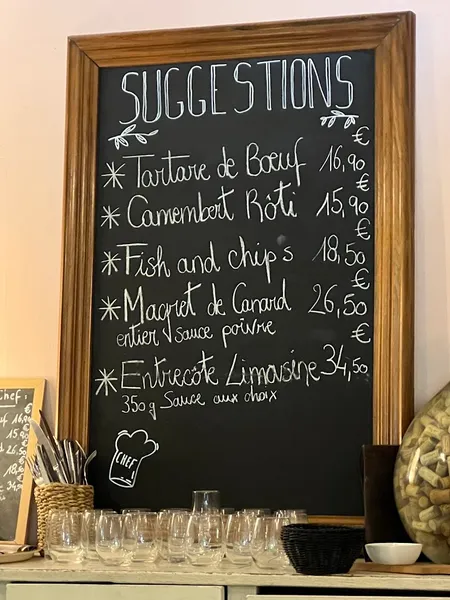 SUGGESTIONS
* Tartare de Bœuf 16,90 €
* Camembert Rôti 15,90 €
* Fish and chips 18,50 €
* Magret de Canard 26,50 €
entier sauce poivre
* Entrecôte Limousine 34,50 €
350g Sauce aux choix
CHEF
Chef: